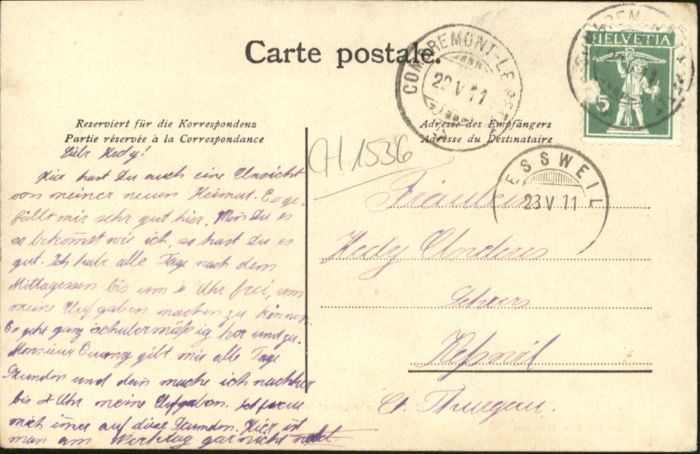 Carte postale.
COMBREMONT-LE-
22 V 11
HELVETIA
5
Reserviert für die Korrespondenz
Partie réservée à la Correspondance
Adresse des Empfängers
Adresse du Destinataire
CH 1536
ESSWEIL
23 V 11
Liebe Hedy!
Hier hast Du auch eine Ansicht
von meiner neuen Heimat. Es ge-
fällt mir sehr gut hier. Du es
so bekomst wie ich, so hast du es
gut. Ich habe alle Tage nach dem
Mittagessen bis um 2 Uhr frei, um
meine Aufgaben machen zu können.
Es geht ganz schulermäßig her und zu.
Monsieur gibt mir alle Tage
Stunden und dann mache ich nachher
bis 2 Uhr meine Aufgaben. Ich freue
mich imer auf diese Stunden. Hier ist
man am Werktag gar nicht
Fräulein
Hedy Anderes
Kesswil
Ct. Thurgau.